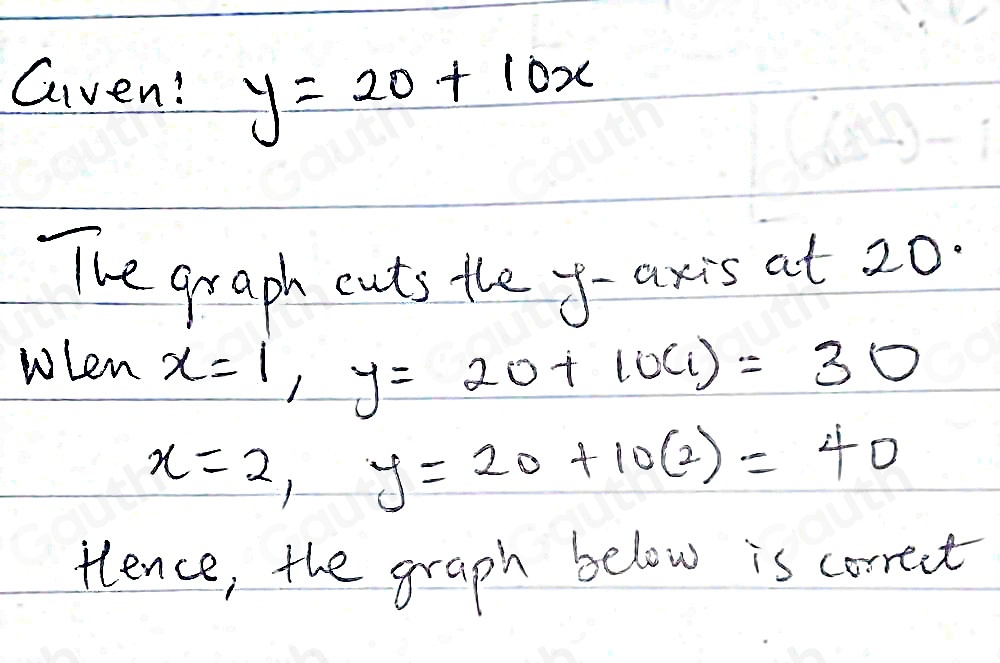 Given: y = 20 + 10x
The graph cuts the y-axis at 20.
When x=1, y= 20+ 10(1) = 30
x=2, y= 20 +10(2) = 40
Hence, the graph below is correct